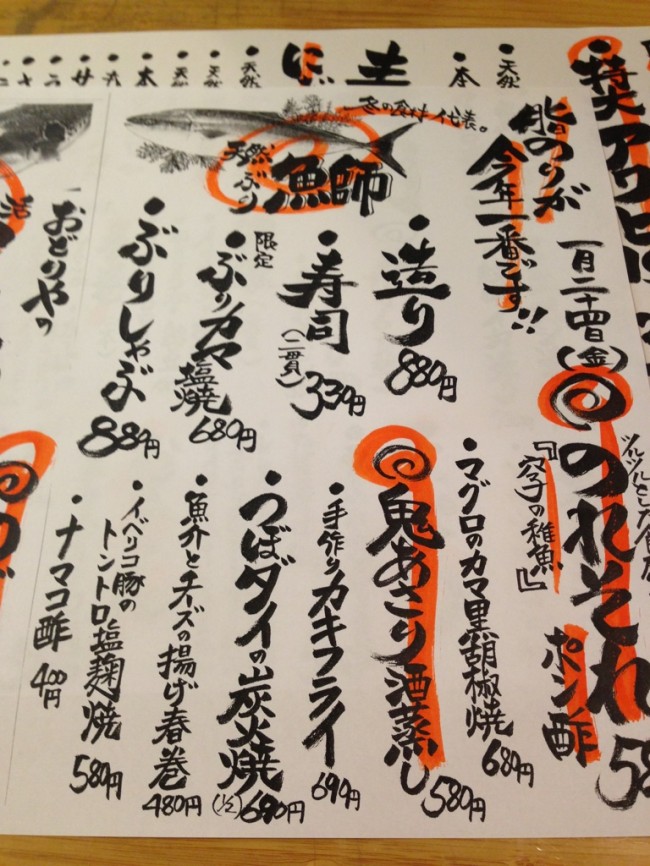 ・特大アワビ
・天然
・本
・天然
・天然
・本
冬の食材代表。
天然ぶり
魚師
脂のりが
今年一番です!!
一月二十四日(金)
・造り
880円
・寿司
(二貫)
330円
限定
・ぶりカマ
塩焼
680円
・ぶりしゃぶ
880円
おどりやっ
のれそれ
『穴子の稚魚』
ポン酢
・マグロのカマ黒胡椒焼
680円
鬼あさり酒蒸し
580円
・手作りカキフライ
690円
・つぼダイの炭火焼
(½)690円
・魚介とチーズの揚げ春巻
480円
・イベリコ豚の
トントロ塩麹焼
580円
・ナマコ酢
400円